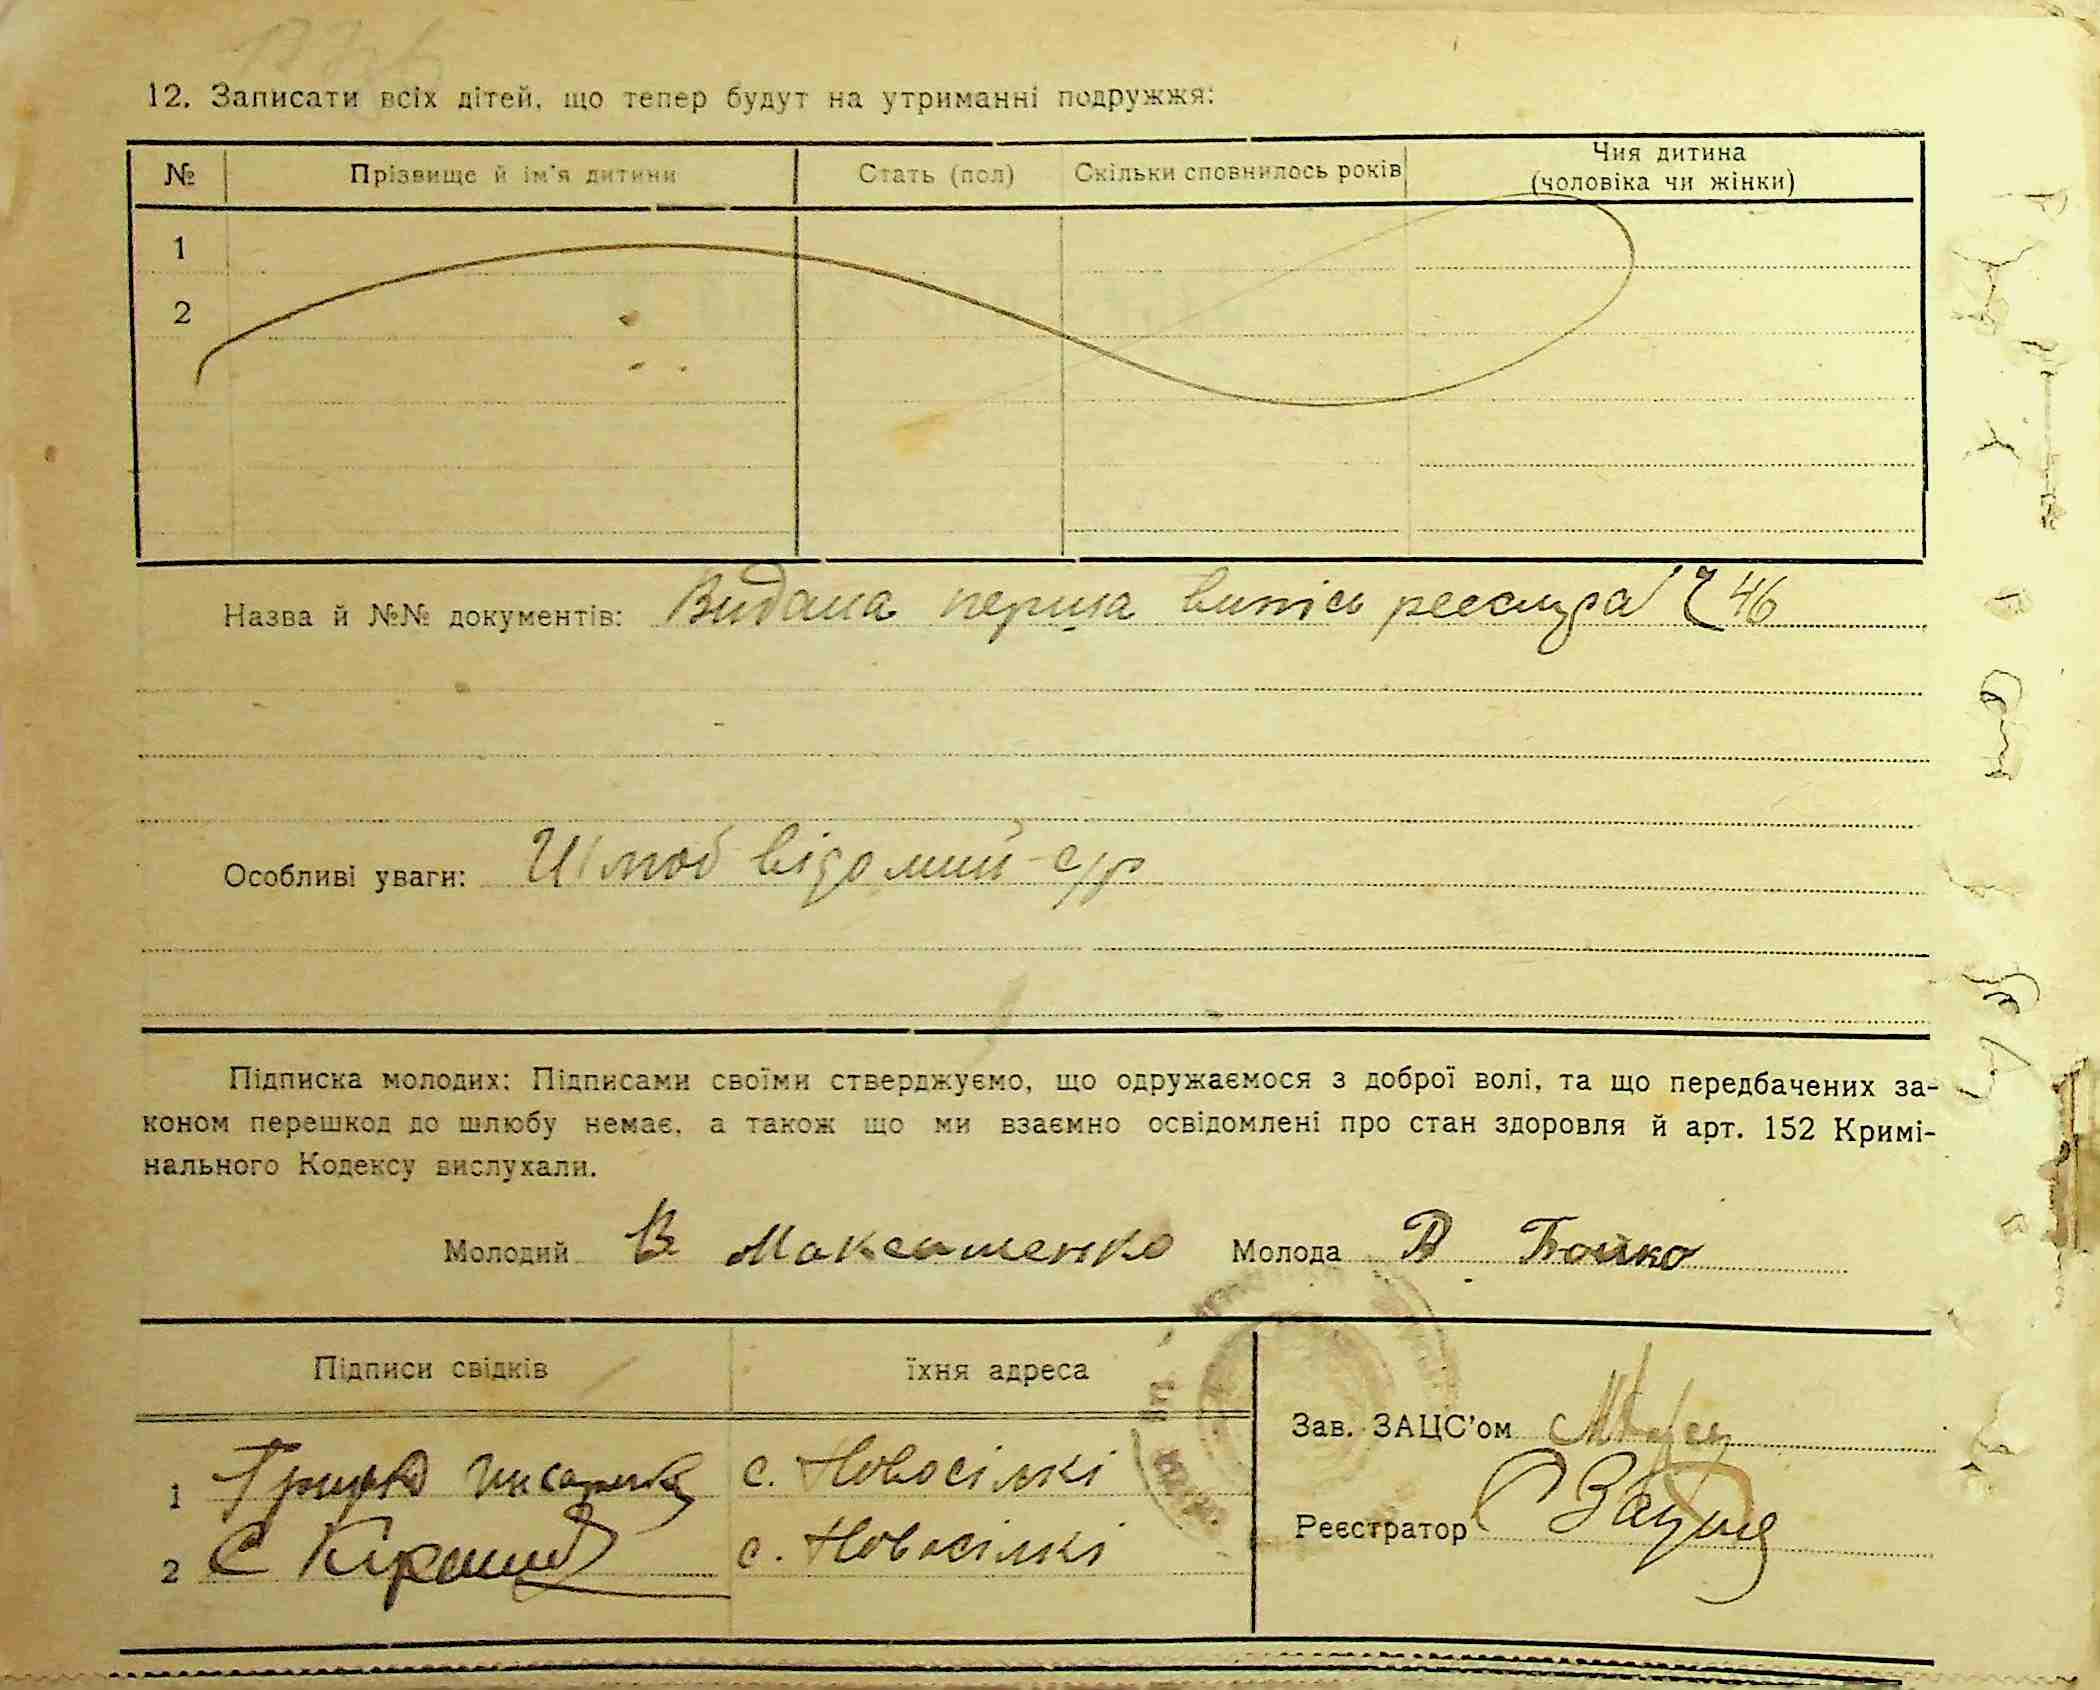 12. Записати всіх дітей, що тепер будут на утриманні подружжя:
№ Прізвище й ім'я дитини Стать (пол) Скільки сповнилось років Чия дитина (чоловіка чи жінки)
1
2
Назва й №№ документів: Видана перша випісь реєстра Ч 46
Особливі уваги: Шлюб відомий с/р
Підписка молодих: Підписами своїми стверджуємо, що одружаємося з доброї волі, та що передбачених за-
коном перешкод до шлюбу немає, а також що ми взаємно освідомлені про стан здоровля й арт. 152 Кримі-
нального Кодексу вислухали.
Молодий В Максименко Молода Бойко
Підписи свідків їхня адреса
Зав. ЗАЦС'ом
1 Грицко с. Новосілкі
Реєстратор
2 С с. Новосілкі